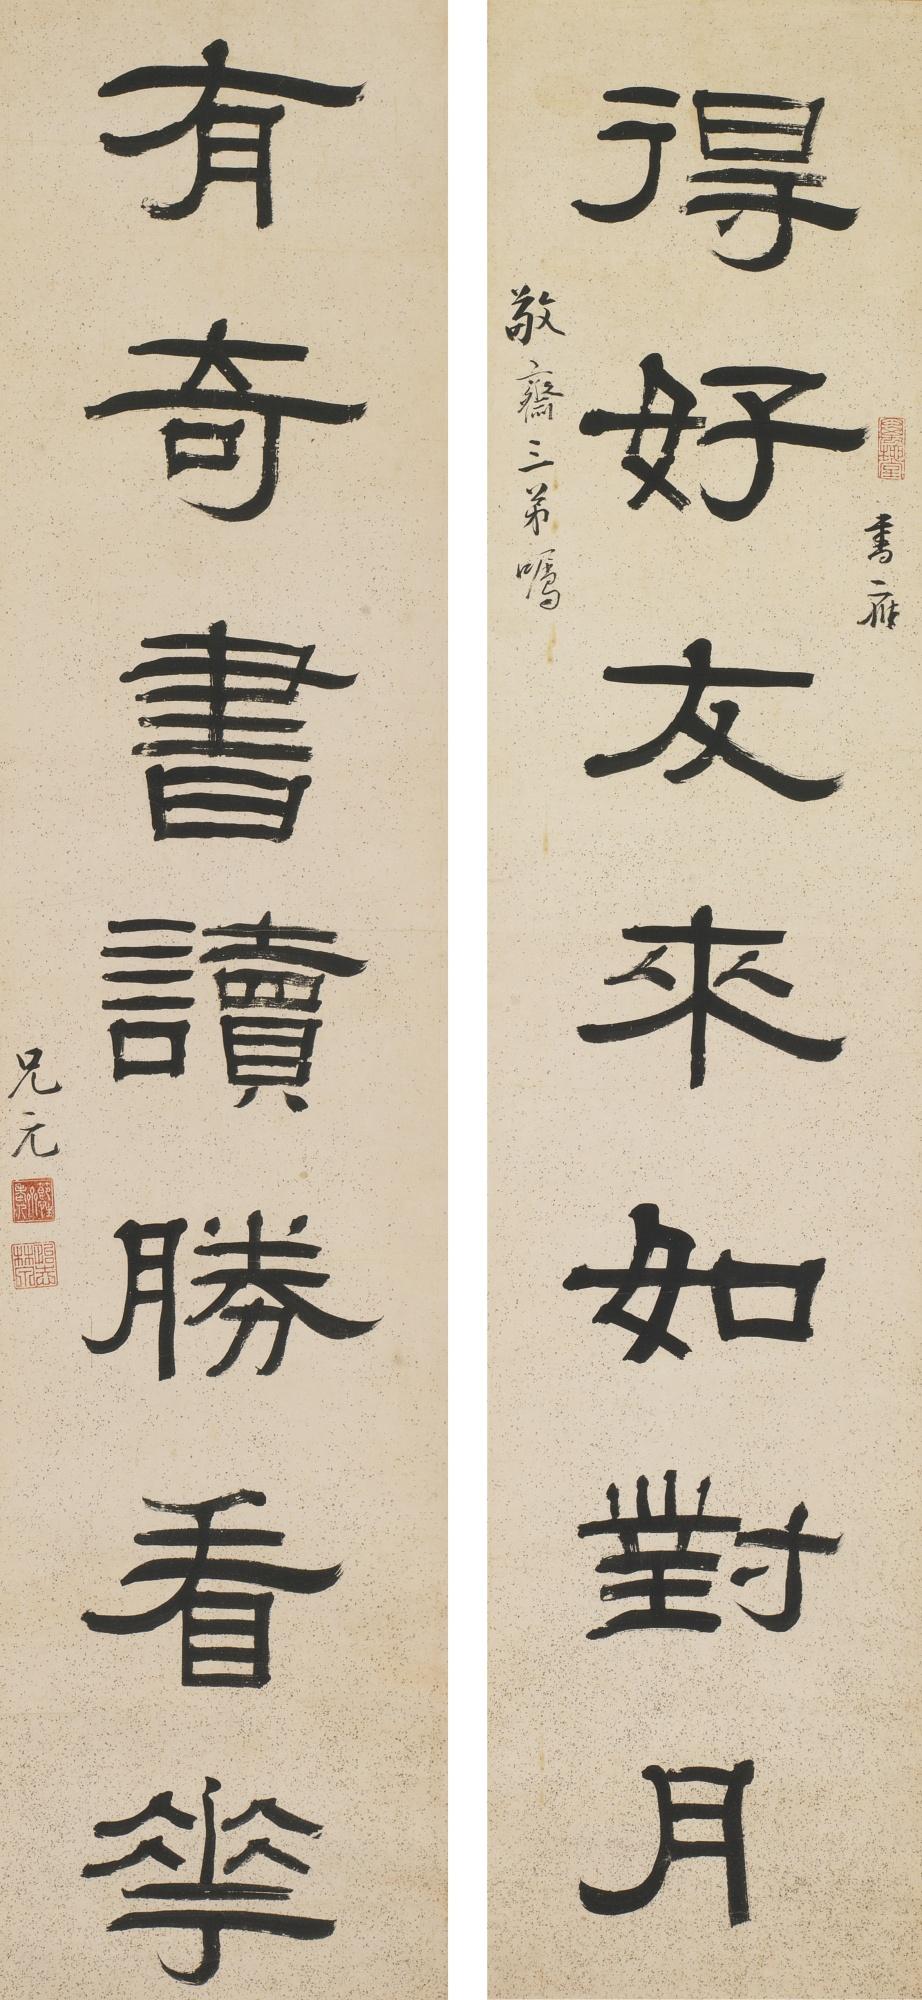 得好友來如對月
書應
敬齋三弟囑
有奇書讀勝看花
兄元